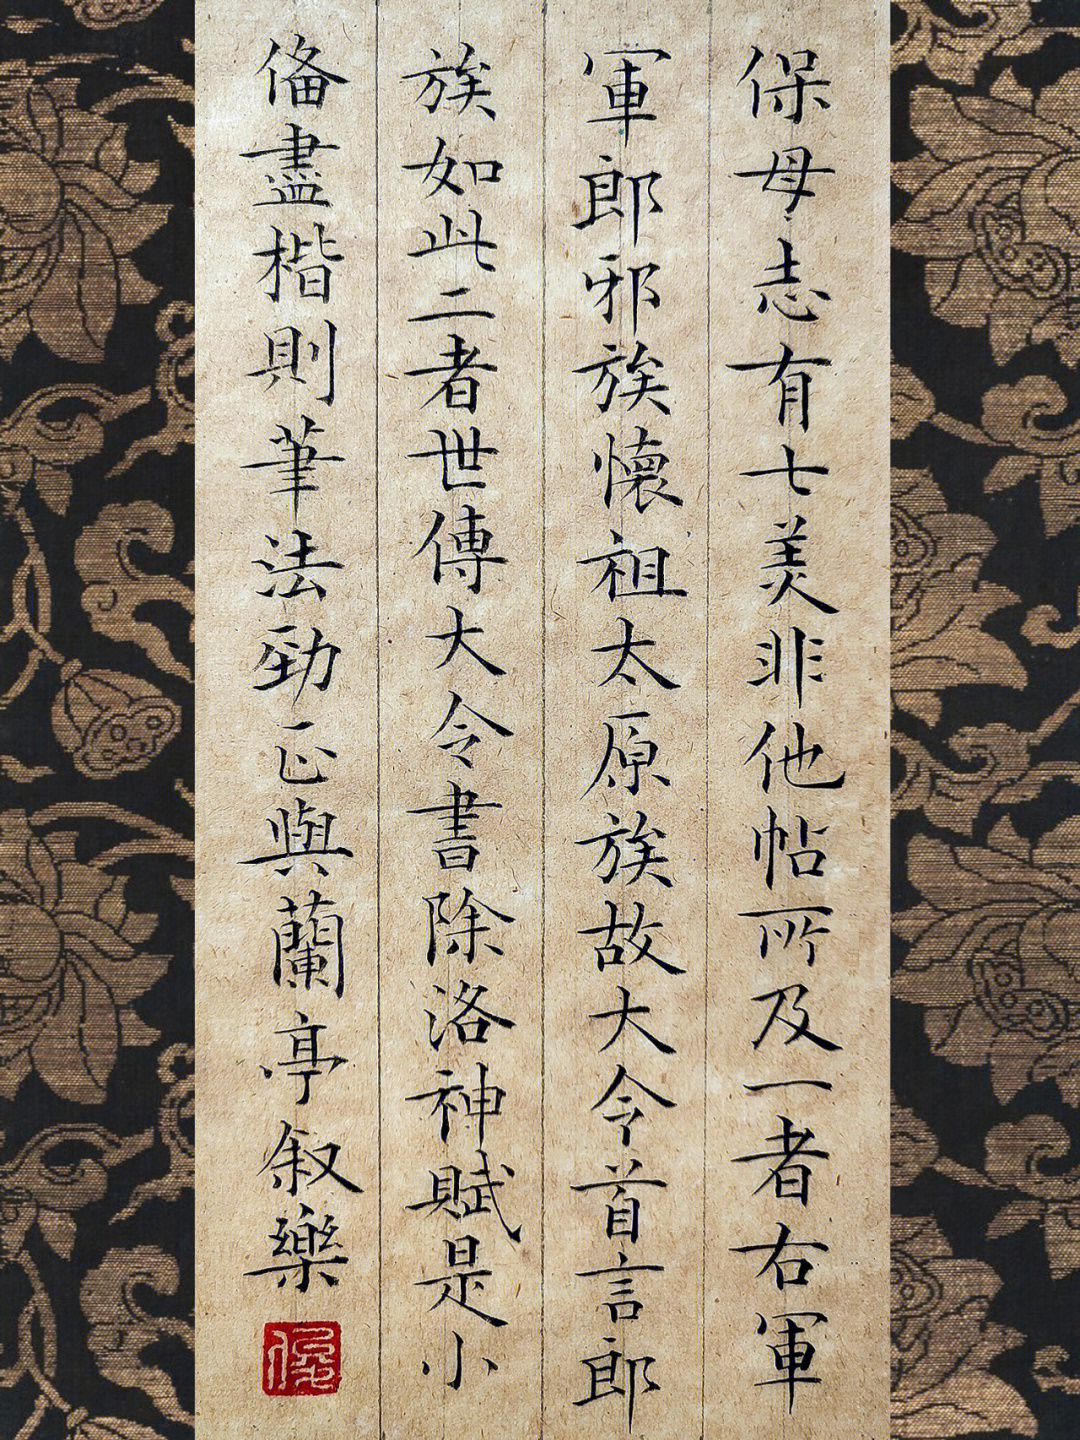 保母志有七美非他帖所及一者右軍
軍郎邪族懷祖太原族故大令首言郎
族如此二者世傳大令書除洛神賦是小
俻盡楷則筆法勁正與蘭亭叙樂